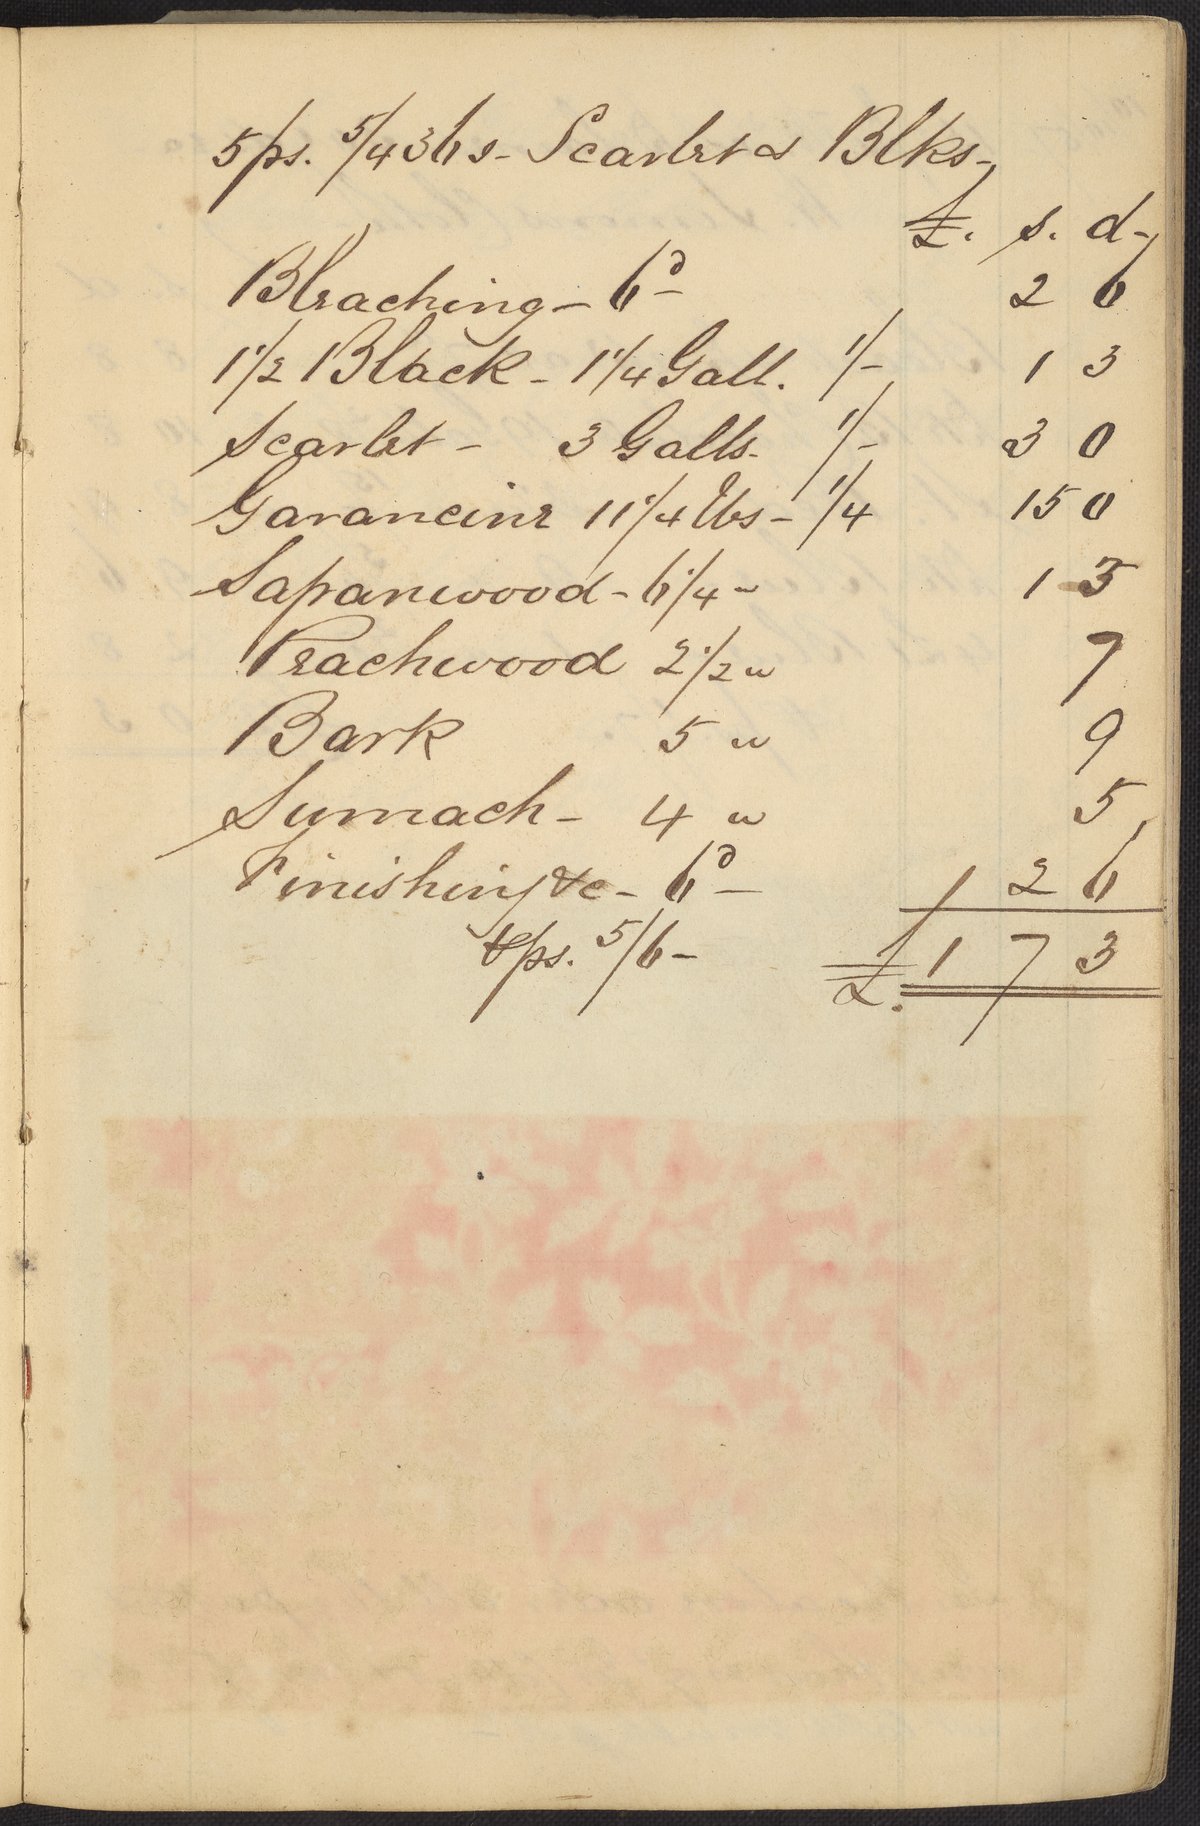 5 ps. 5/4 36s - Scarlet & Blks -
£. s. d -
Bleaching - 6d - 2 6
1 1/2 Black - 1 1/4 Gall. 1/- 1 3
Scarlet - 3 Galls - 1/- 3 0
Garancine 11 1/4 lbs - 1/4 15 0
Sapanwood - 6 1/4 " 1 3
Peachwood 2 1/2 " 7
Bark 5 " 9
Sumach - 4 " 5
Finishing &c - 6d - 2 6
ps. 5/6 - £. 1 7 3